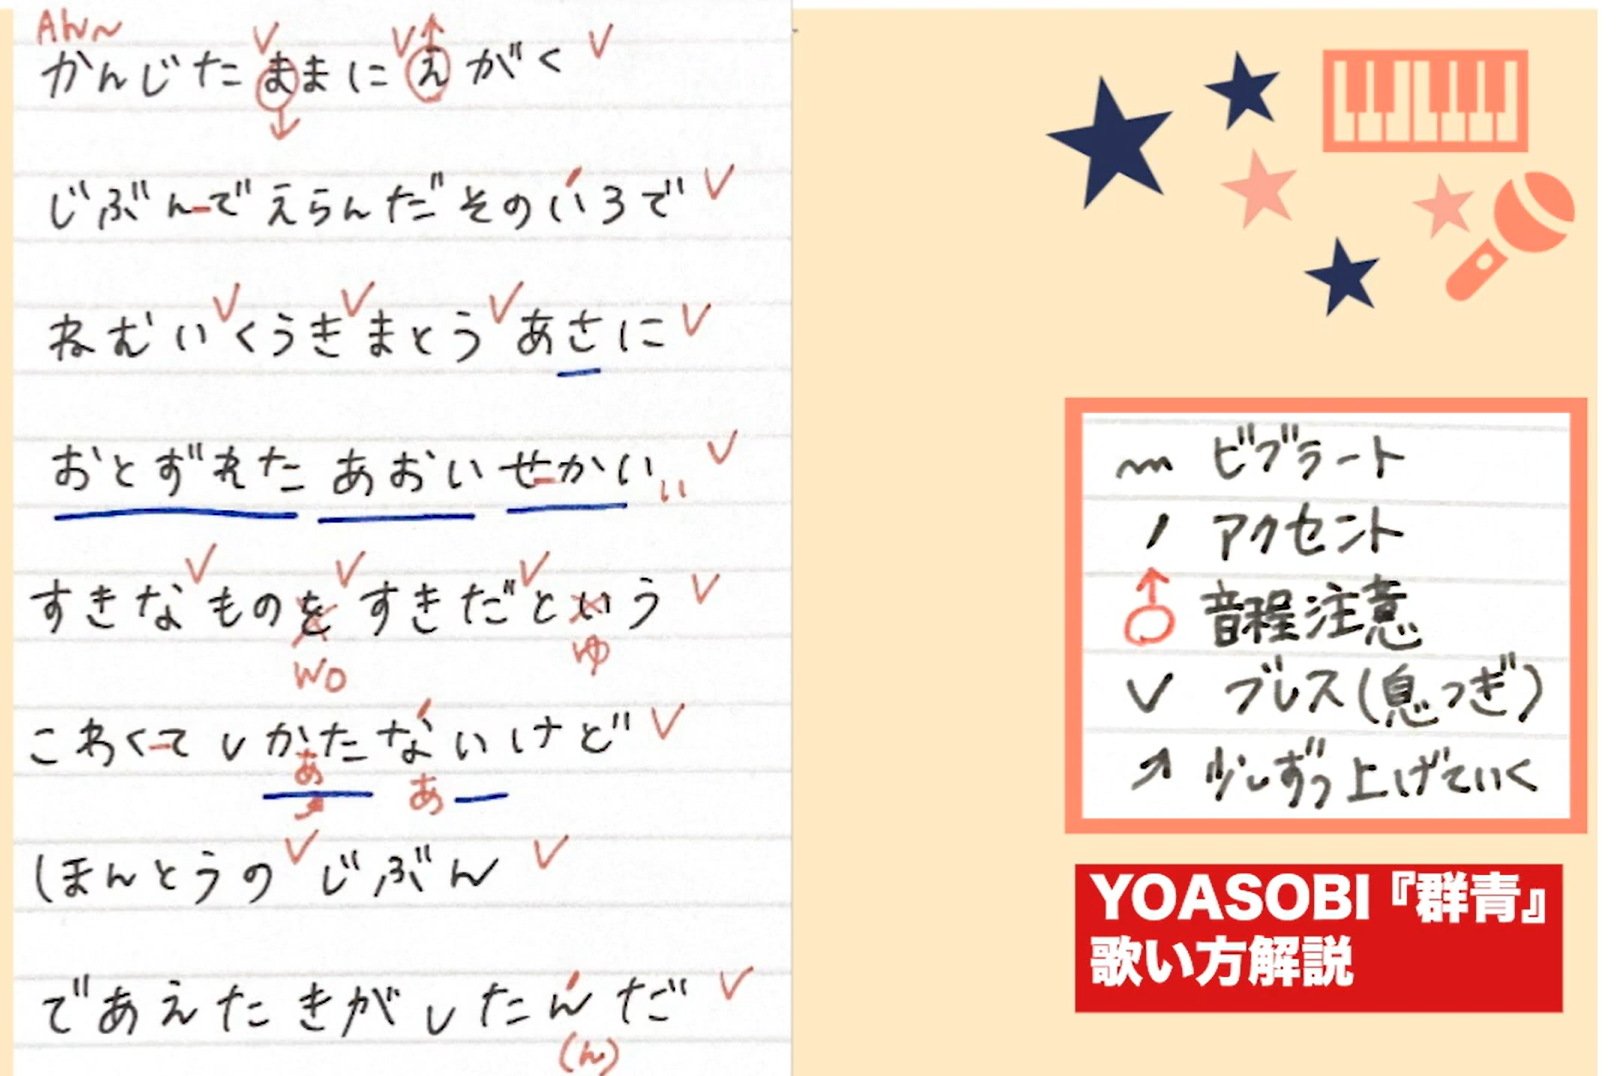 Ahh~
かんじたままにえがく
じぶんでえらんだそのいろで
ねむいくうきまとうあさに
おとずれた あおい せかい
ぃぃ
すきなものをすきだという
wo ゆ
こわくてしかたないけど
あ あ
ほんとうの じぶん
であえたきがしたんだ
(ん)
ビブラート
アクセント
音程注意
ブレス(息つぎ)
少しずつ上げていく
YOASOBI『群青』
歌い方解説